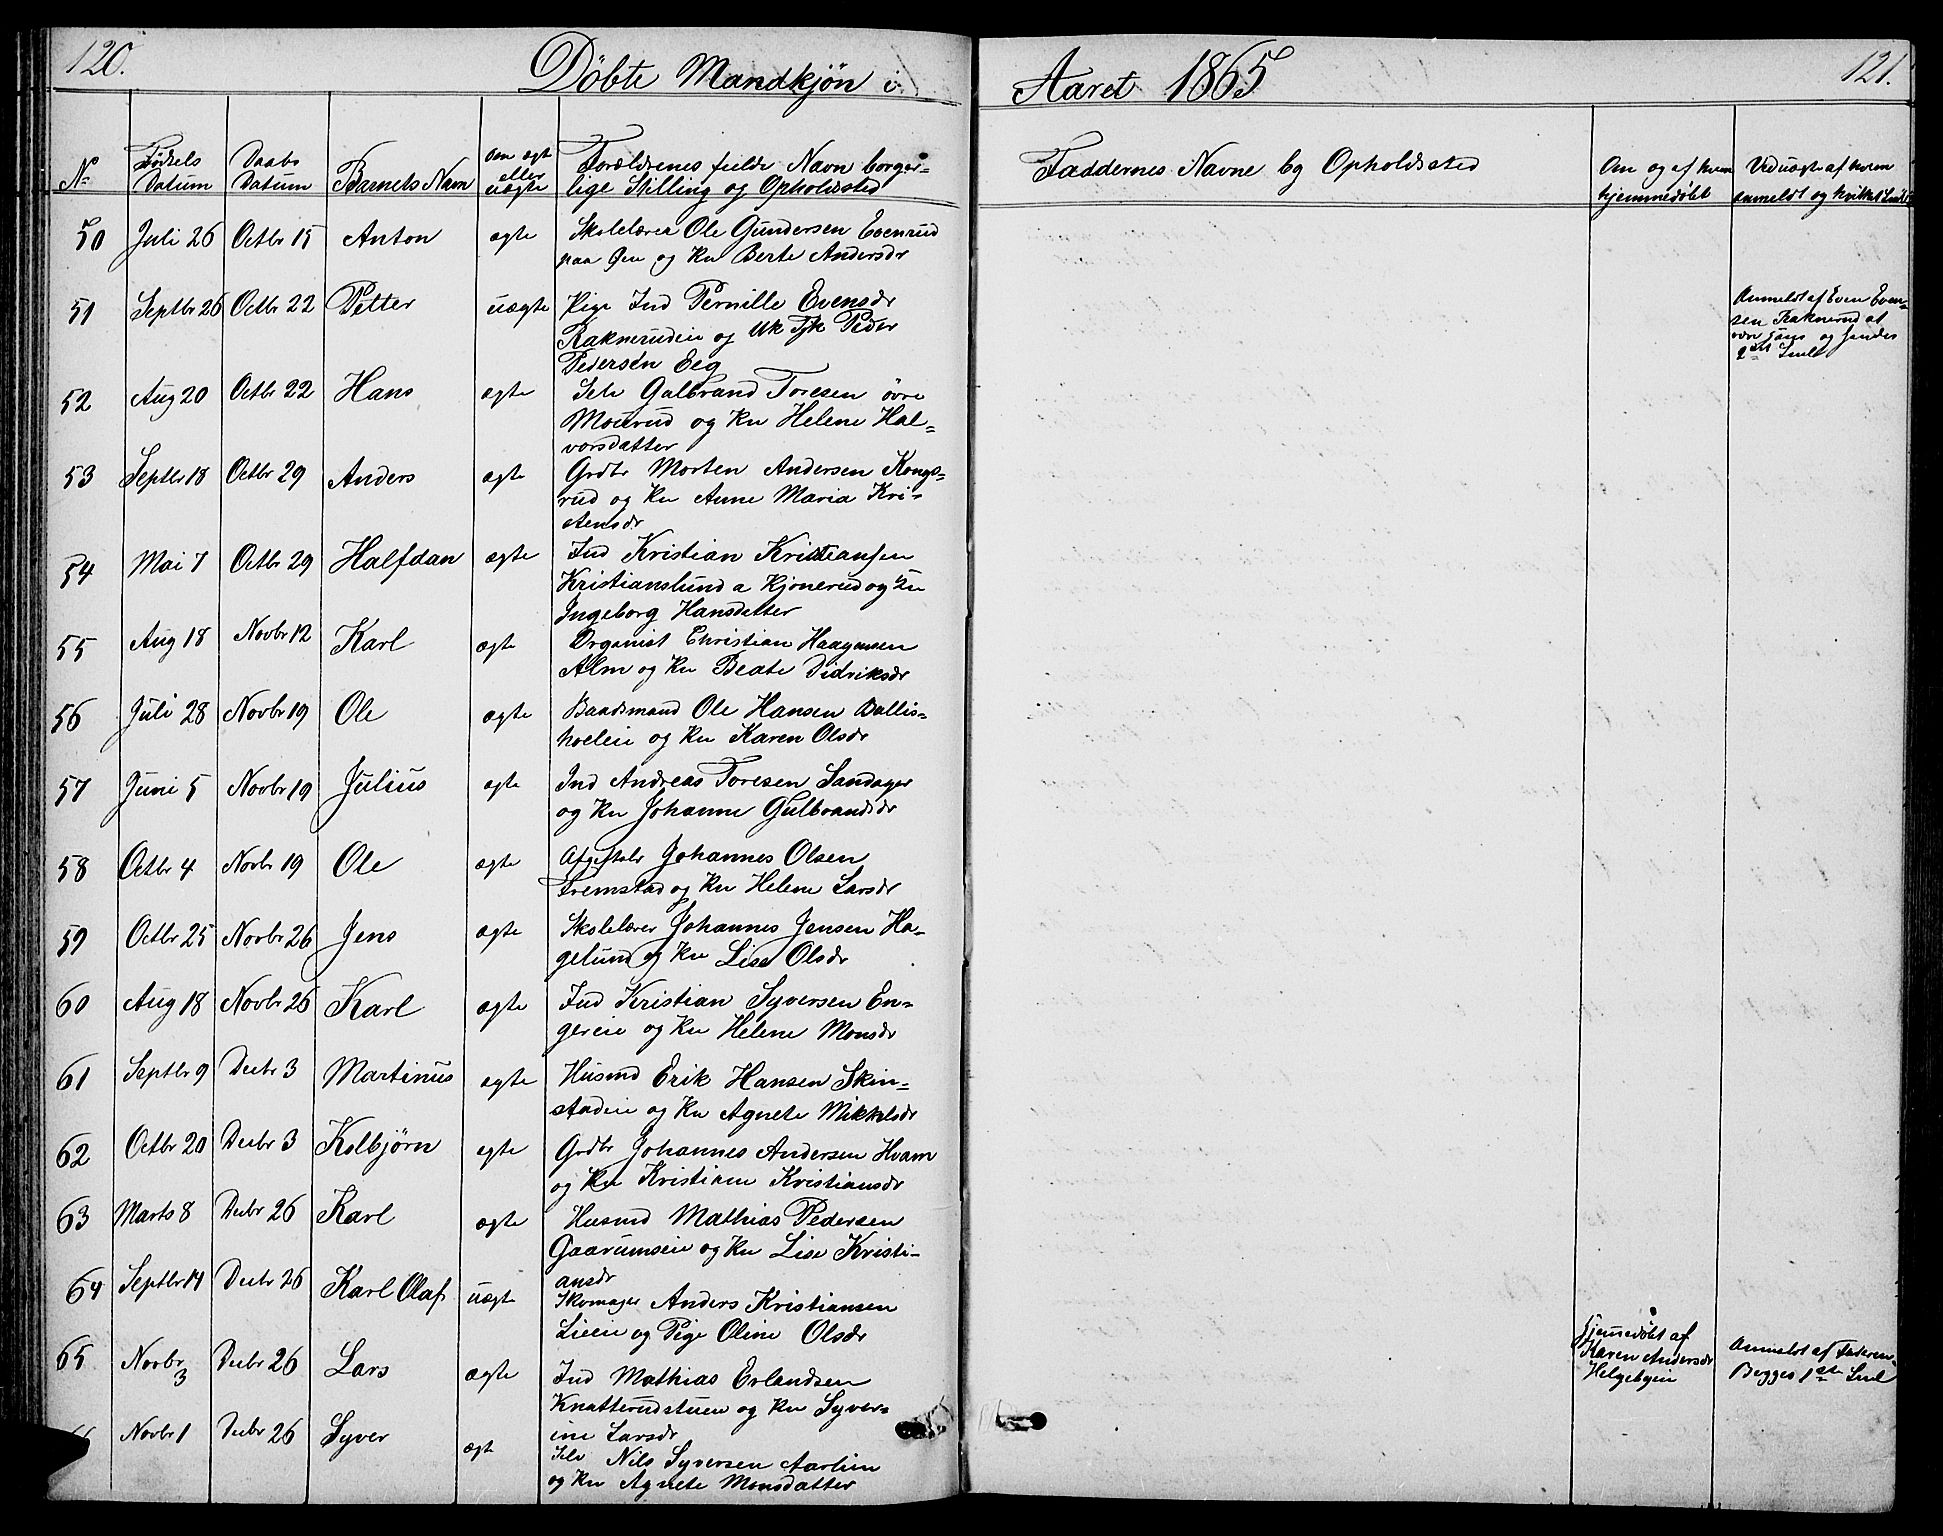 120.
Döbte Mandkjön i
Aaret 1865
121.
No
Födsels Datum
Daabs Datum
Barnets Navn
Om ægt eller uægte
Forældrenes fulde Navn borger-
lige Stilling og Opholdssted
Faddernes Navne og Opholdssted
Om og af hvem
hjemmedöbt
Ved uægte af hvem
anmeldt og hvilket Leil
50 Juli 26 Octbr 15 Anton ægte Skolelærer Ole Gundersen Evenrud
paa Øen og Ku Berte Andersdr
51 Septbr 26 Octbr 22 Petter uægte Pige Ind Pernille Evensdr
Raknerudeie og Uk Fk Peder
Pedersen Eeg
Anmeldt af Even Even-
sen Raknerud at
være hans og hendes
2det Leil
52 Aug 20 Octbr 22 Hans ægte Selv Gulbrand Toresen övre
Mourud og Ku Helene Hal-
vorsdatter
53 Septbr 18 Octbr 29 Anders ægte Grdbr Morten Andersen Kongs-
rud og Ku Anne Maria Kri-
stensdr
54 Mai 7 Octbr 29 Halfdan ægte Ind Kristian Kristiansen
Kristianslund a Kjonerud og Ku
Ingeborg Hansdatter
55 Aug 18 Novbr 12 Karl ægte Organist Christian Haagensen
Alm og Ku Beate Didriksdr
56 Juli 28 Novbr 19 Ole ægte Baadsmand Ole Hansen Ballis-
holeie og Ku Karen Olsdr
57 Juni 5 Novbr 19 Julius ægte Ind Andreas Toresen Sandager
og Ku Johanne Gulbrandsdr
58 Octbr 4 Novbr 19 Ole ægte Afgiftsbr Johannes Olsen
Fremstad og Ku Helene Larsdr
59 Octbr 25 Novbr 26 Jens ægte Skolelærer Johannes Jensen Ha-
gelund og Ku Lise Olsdr
60 Aug 18 Novbr 26 Karl ægte Ind Kristian Syversen En-
gereie og Ku Helene Monsdr
61 Septbr 9 Decbr 3 Martinus ægte Husmd Erik Hansen Skin-
stadeie og Ku Agnete Mikkelsdr
62 Octbr 20 Decbr 3 Kolbjörn egte Grdbr Johannes Andersen Hvam
og Ku Kristiane Kristiansdr
63 Marts 8 Decbr 26 Karl ægte Husmd Mathias Pedersen
Gaarumseie og Ku Lise Kristi-
ansdr
64 Septbr 14 Decbr 26 Karl Olaf uægte Skomager Anders Kristiansen
Lieeie og Pige Oline Olsdr
Hjemmedöbt af
Karen Andersdr
Helgebyeie
Anmeldt af Faderen-
Begges 1ste Leil
65 Novbr 3 Decbr 26 Lars ægte Ind Mathias Erlandsen
Knatterudstuen og Ku Syver-
ine Larsdr
66 Novbr 1 Decbr 26 Syver ægt Selv Nils Syversen Aarlien
og Ku Agnete Monsdatter